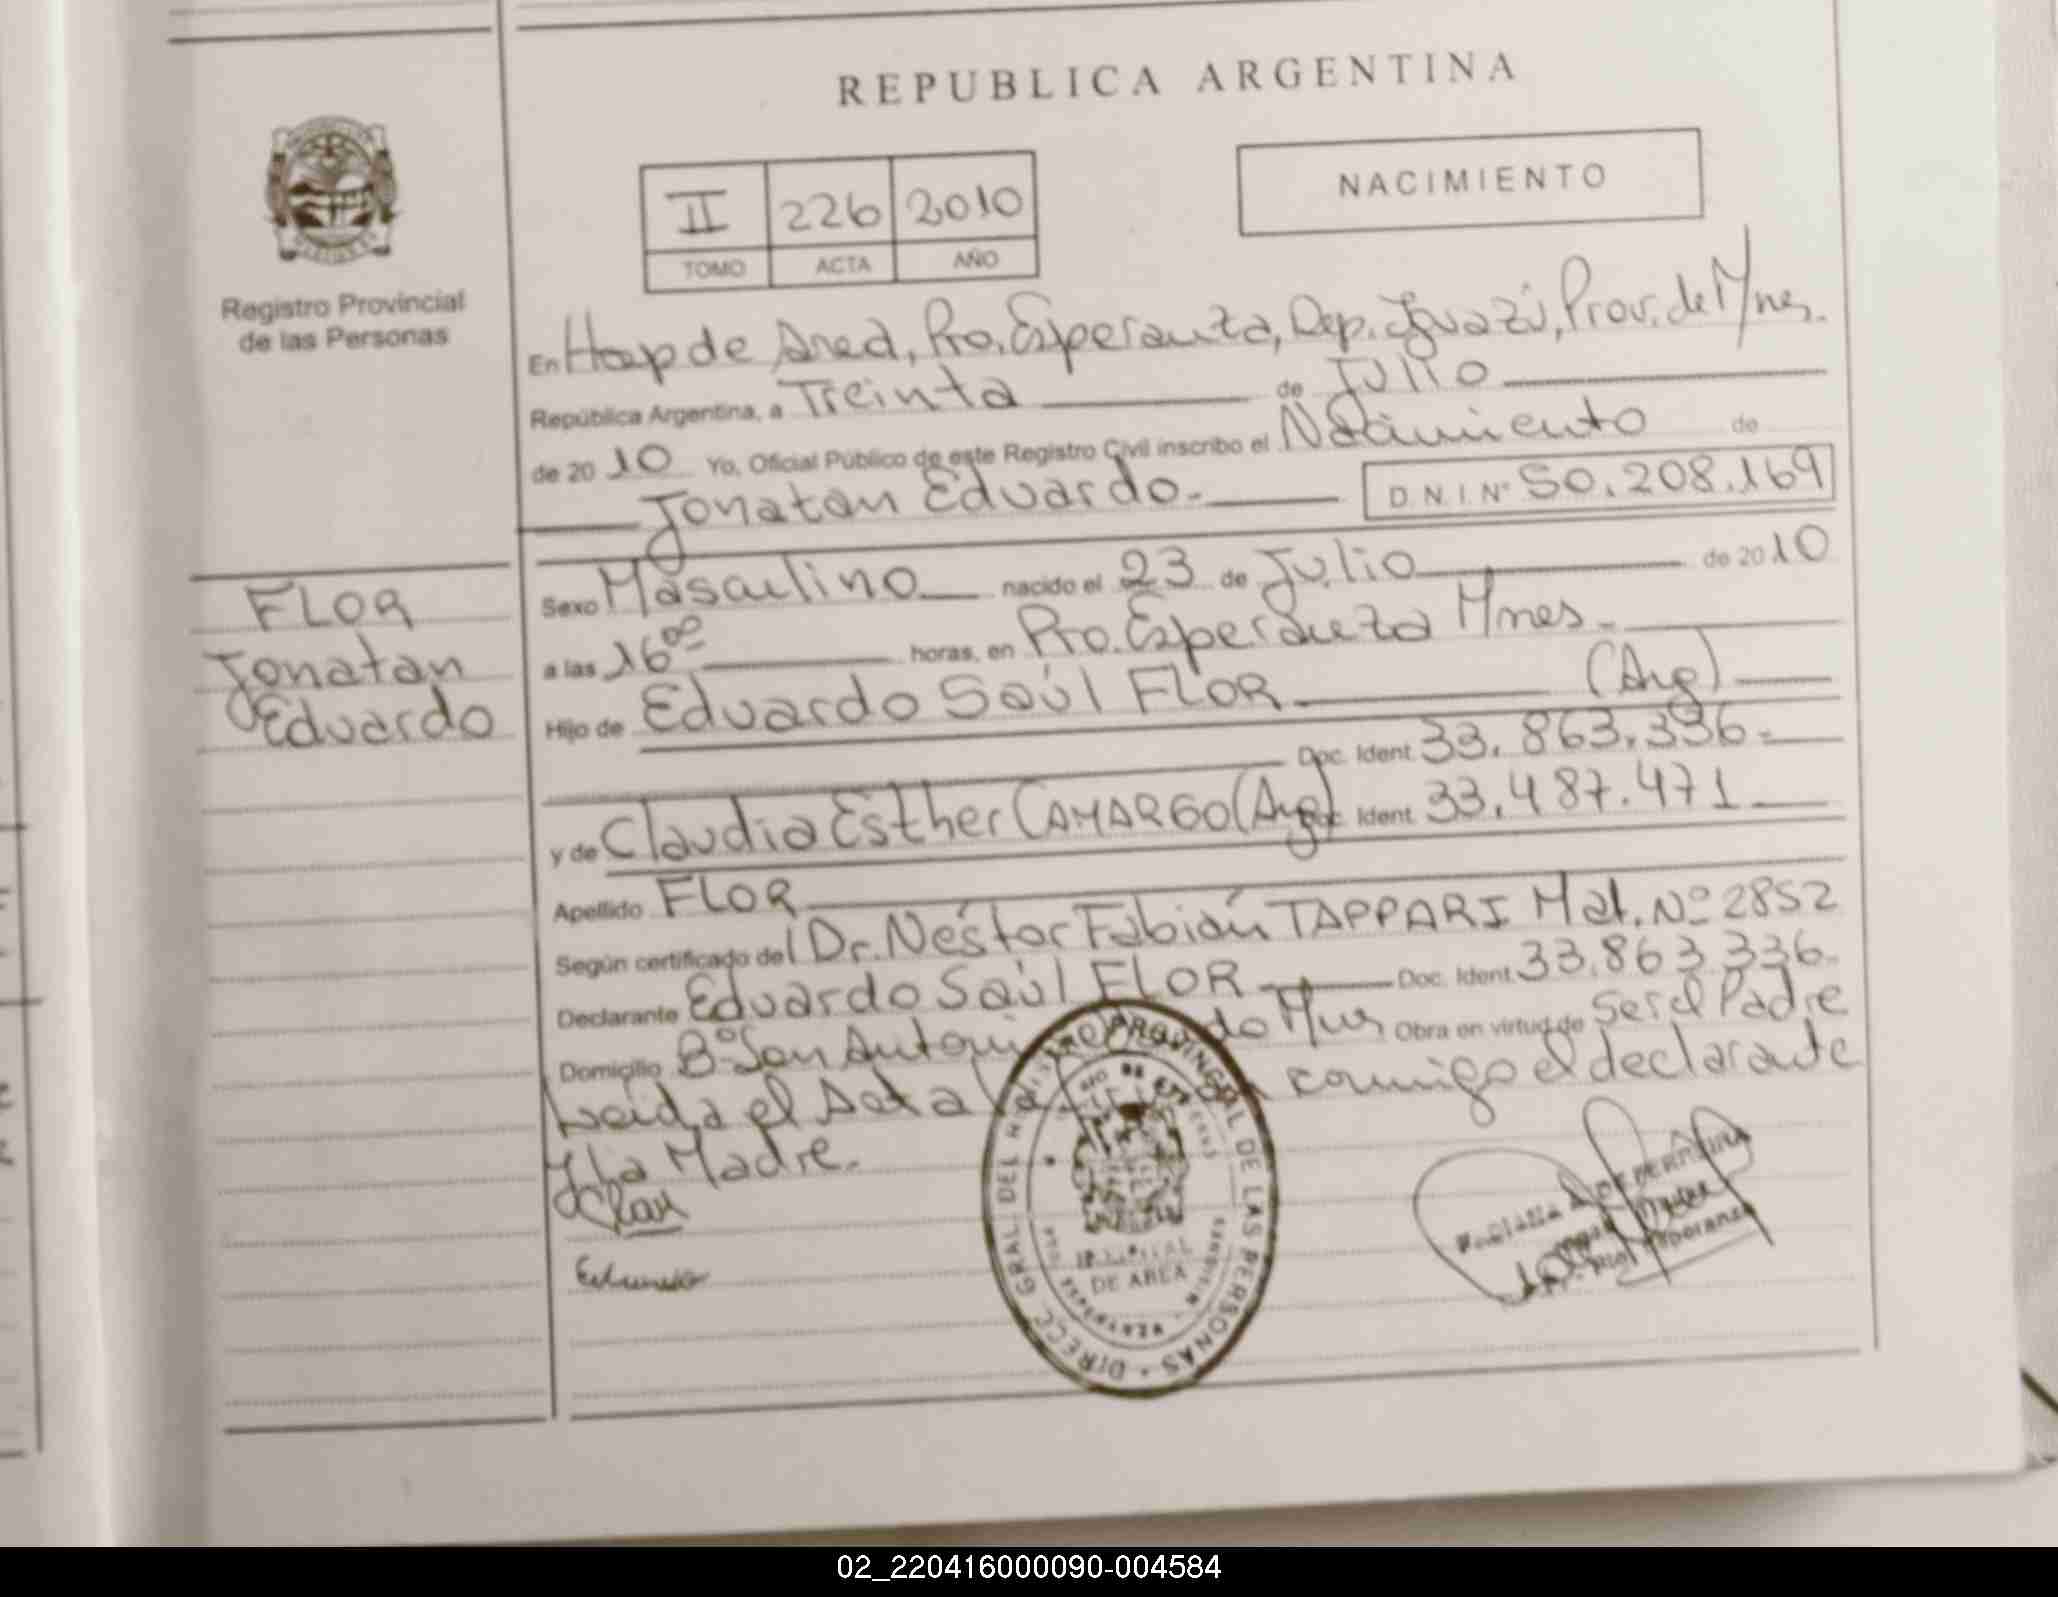 REPUBLICA ARGENTINA
II 226 2010
TOMO ACTA AÑO
NACIMIENTO
Registro Provincial
de las Personas
En Hosp de Area, Pto. Esperanza, Dep. Iguazú, Prov. de Mnes.
República Argentina, a Treinta de Julio
de 2010 Yo, Oficial Público de este Registro Civil inscribo el Nacimiento de
Jonatan Eduardo.- D.N.I. Nº 50.208.169
FLOR
Jonatan
Eduardo
Sexo Masculino nacido el 23 de Julio de 2010
a las 16ºº horas, en Pto. Esperanza Mnes.
Hijo de Eduardo Saúl FLOR (Arg)
Doc. Ident. 33.863.336.-
y de Claudia Esther CAMARGO (Arg) Doc. Ident. 33.487.471
Apellido FLOR
Según certificado del Dr. Néstor Fabián TAPPARI Mat. Nº 2852
Declarante Eduardo Saúl FLOR Doc. Ident. 33.863.336.-
Domicilio Bº San Antonio Obra en virtud de Ser el Padre
Leida el Acta conmigo el declarante
y la Madre.
DIRECC. GRAL. DEL REGISTRO PROVINCIAL DE LAS PERSONAS
HOSPITAL
DE AREA
02_220416000090-004584